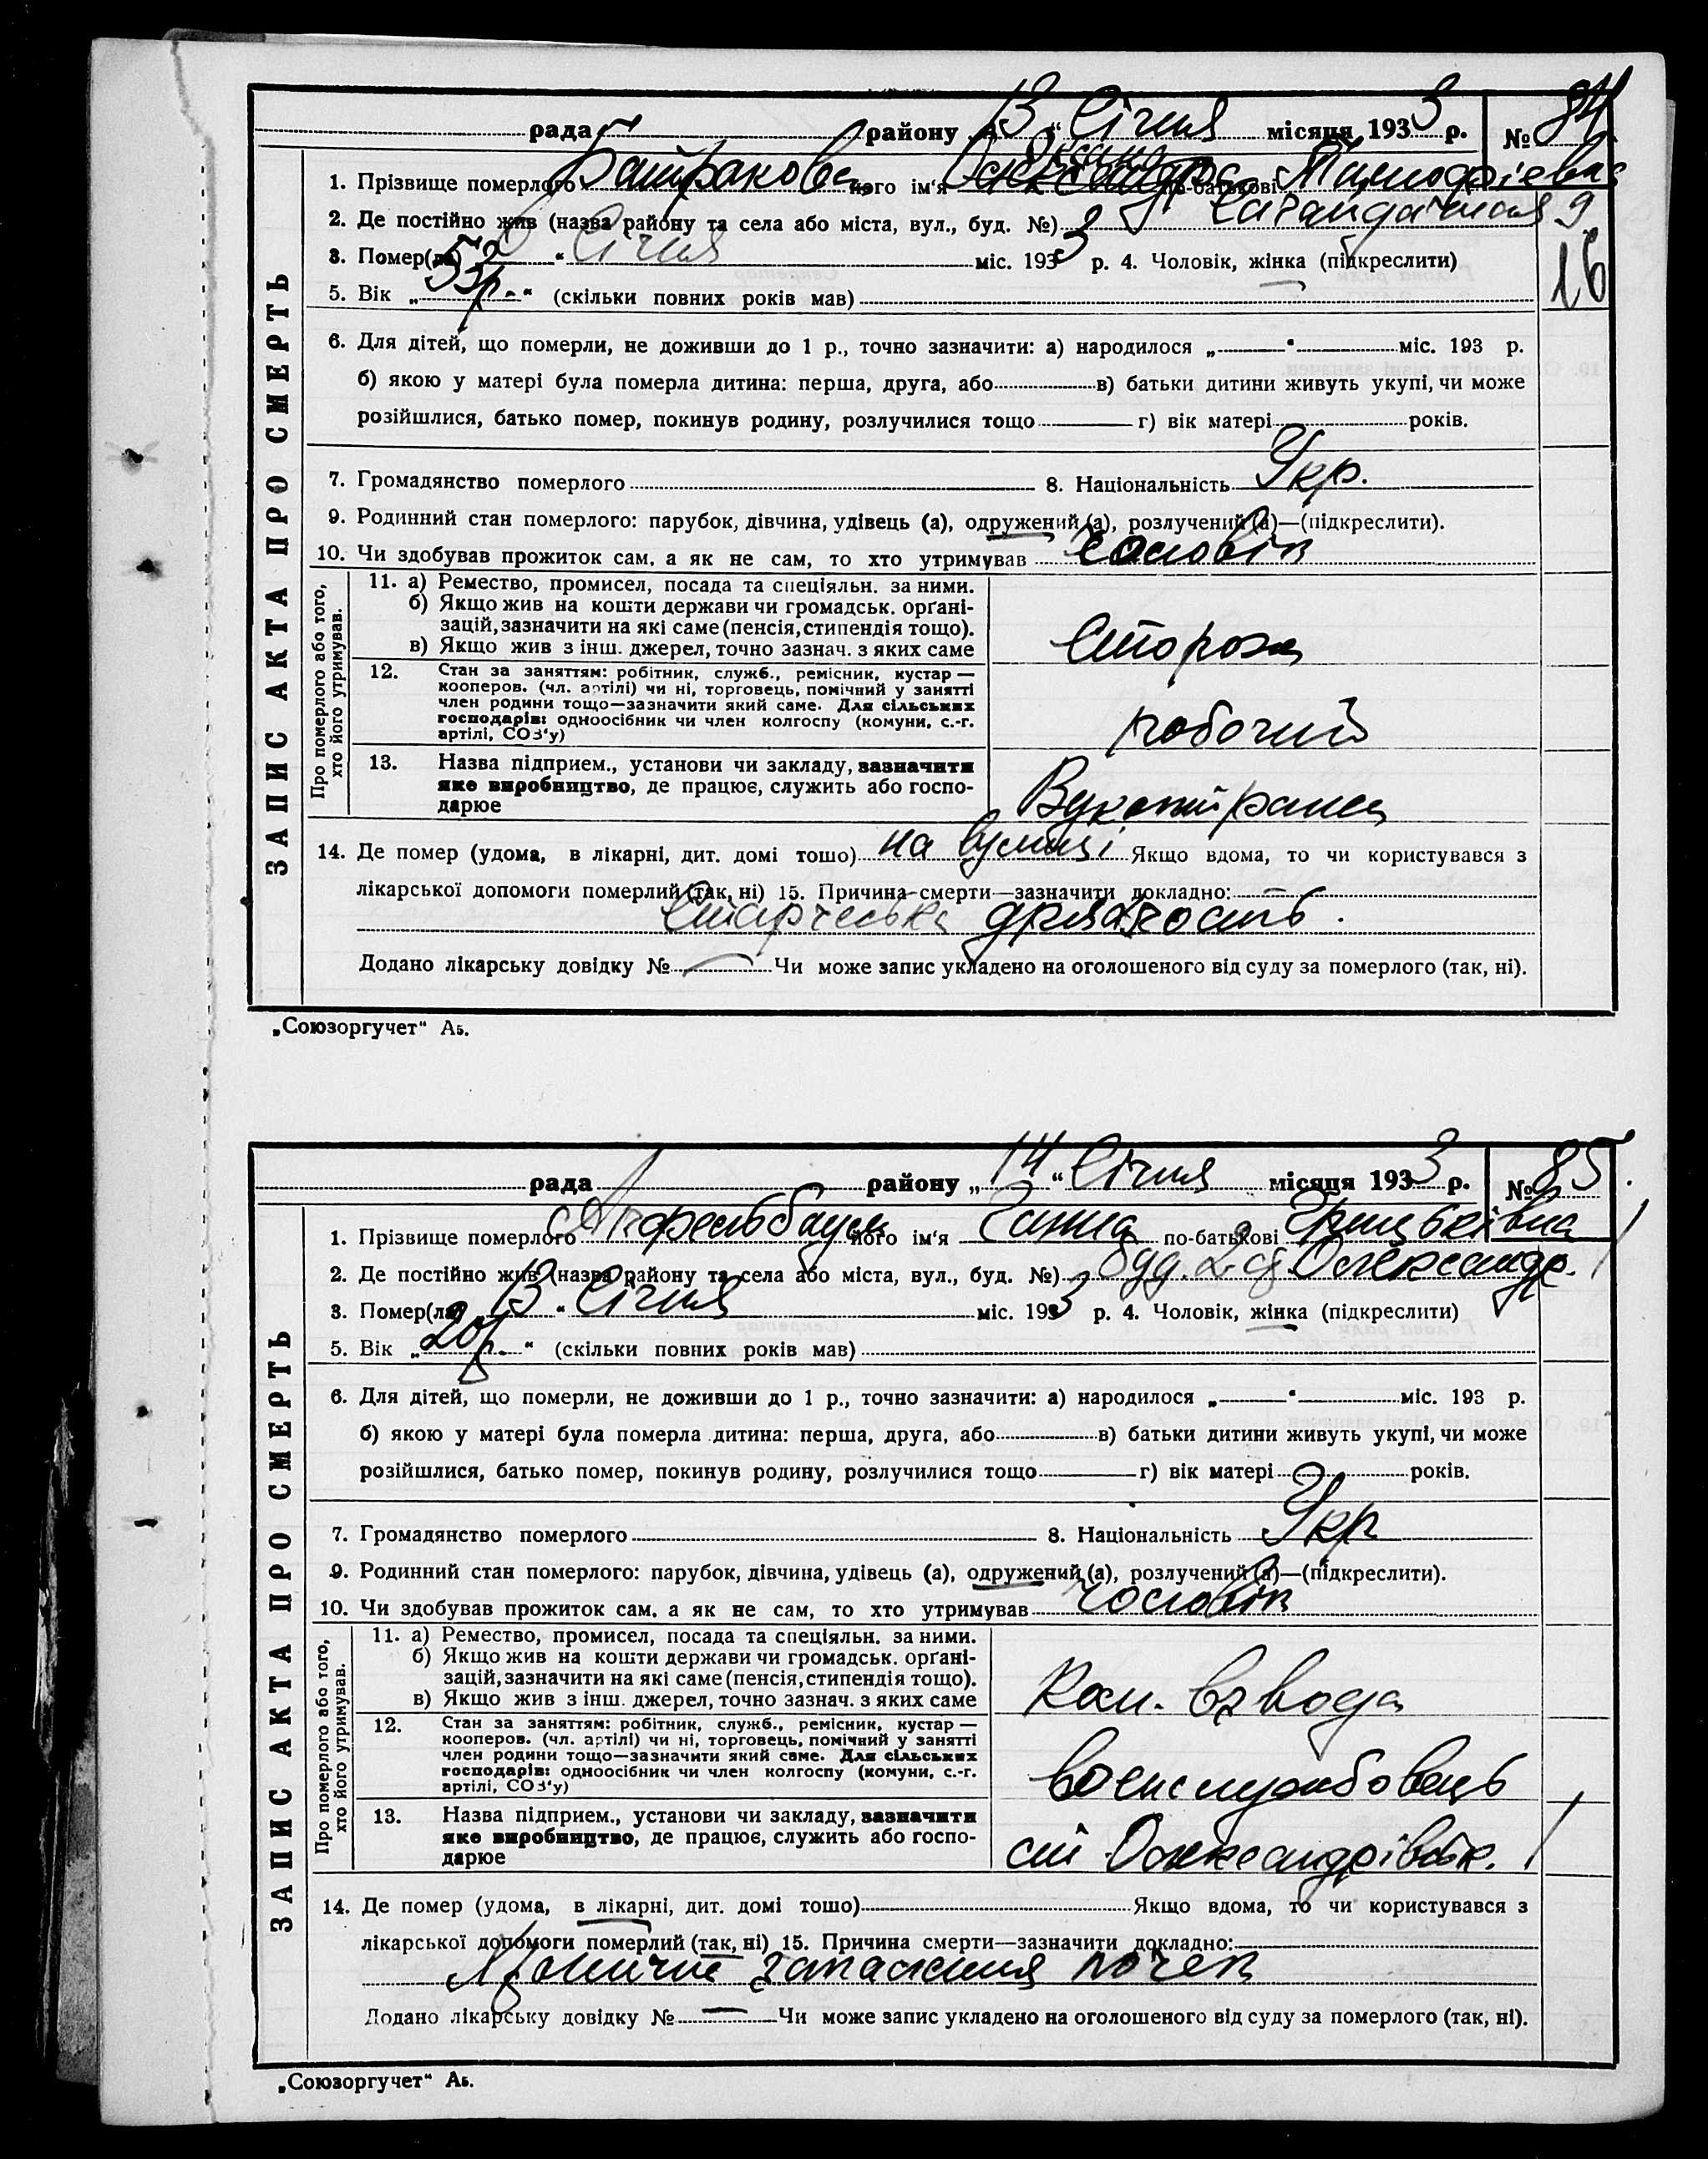 рада району „13“ Січня місяця 1933 р. № 84
Оксана
1. Прізвище померлого Байракова його ім'я по-батькові
2. Де постійно жив (назва району та села або міста, вул., буд. №) 9
3. Помер(ла) “ Січня міс. 1933 р. 4. Чоловік, жінка (підкреслити)
16
5. Вік „ 55 р. “ (скільки повних років мав)
6. Для дітей, що померли, не доживши до 1 р., точно зазначити: а) народилося „ “ міс. 193 р.
б) якою у матері була померла дитина: перша, друга, або в) батьки дитини живуть укупі, чи може
розійшлися, батько помер, покинув родину, розлучилися тощо г) вік матері років.
7. Громадянство померлого 8. Національність Укр.
9. Родинний стан померлого: парубок, дівчина, удівець (а), одружений (а), розлучений (а)—(підкреслити).
10. Чи здобував прожиток сам, а як не сам, то хто утримував Чоловік
ЗАПИС АКТА ПРО СМЕРТЬ
Про померлого або того, хто його утримував.
11. а) Ремество, промисел, посада та спеціяльн. за ними.
б) Якщо жив на кошти держави чи громадськ. орґані-
зацій, зазначити на які саме (пенсія, стипендія тощо).
в) Якщо жив з інш. джерел, точно зазнач. з яких саме
Сторож
12. Стан за заняттям: робітник, служб., ремісник, кустар —
кооперов. (чл. артілі) чи ні, торговець, помічний у занятті
член родини тощо—зазначити який саме. Для сільських
господарів: одноосібник чи член колгоспу (комуни, с.-г.
артілі, СОЗ'у)
робочий
13. Назва підприєм., установи чи закладу, зазначити
яке виробництво, де працює, служить або госпо-
дарює
14. Де помер (удома, в лікарні, дит. домі тощо) на вулиці Якщо вдома, то чи користувався з
лікарської допомоги померлий (так, ні) 15. Причина смерти—зазначити докладно:
Старческа дряхлость.
Додано лікарську довідку № Чи може запис укладено на оголошеного від суду за померлого (так, ні).
„Союзоргучет“ А5.
рада району „14“ Січня місяця 1933 р. № 85
1. Прізвище померлого Апфельбаум його ім'я Ганна по-батькові Грицьківна
2. Де постійно жив (назва району та села або міста, вул., буд. №) буд. Олександр.
3. Помер(ла) „13“ Січня міс. 1933 р. 4. Чоловік, жінка (підкреслити)
5. Вік „ 20 р. “ (скільки повних років мав)
6. Для дітей, що померли, не доживши до 1 р., точно зазначити: а) народилося „ “ міс. 193 р.
б) якою у матері була померла дитина: перша, друга, або в) батьки дитини живуть укупі, чи може
розійшлися, батько помер, покинув родину, розлучилися тощо г) вік матері років.
7. Громадянство померлого 8. Національність Укр
9. Родинний стан померлого: парубок, дівчина, удівець (а), одружений (а), розлучений (а)—(підкреслити).
10. Чи здобував прожиток сам, а як не сам, то хто утримував Чоловік
ЗАПИС АКТА ПРО СМЕРТЬ
Про померлого або того, хто його утримував.
11. а) Ремество, промисел, посада та спеціяльн. за ними.
б) Якщо жив на кошти держави чи громадськ. орґані-
зацій, зазначити на які саме (пенсія, стипендія тощо).
в) Якщо жив з інш. джерел, точно зазнач. з яких саме
Ком. взвода
12. Стан за заняттям: робітник, служб., ремісник, кустар —
кооперов. (чл. артілі) чи ні, торговець, помічний у занятті
член родини тощо—зазначити який саме. Для сільських
господарів: одноосібник чи член колгоспу (комуни, с.-г.
артілі, СОЗ'у)
воєнслужбовець
13. Назва підприєм., установи чи закладу, зазначити
яке виробництво, де працює, служить або госпо-
дарює
ст Олександрівськ.
14. Де помер (удома, в лікарні, дит. домі тощо) Якщо вдома, то чи користувався з
лікарської допомоги померлий (так, ні) 15. Причина смерти—зазначити докладно:
Хроничне запалення почек
Додано лікарську довідку № — Чи може запис укладено на оголошеного від суду за померлого (так, ні).
„Союзоргучет“ А5.